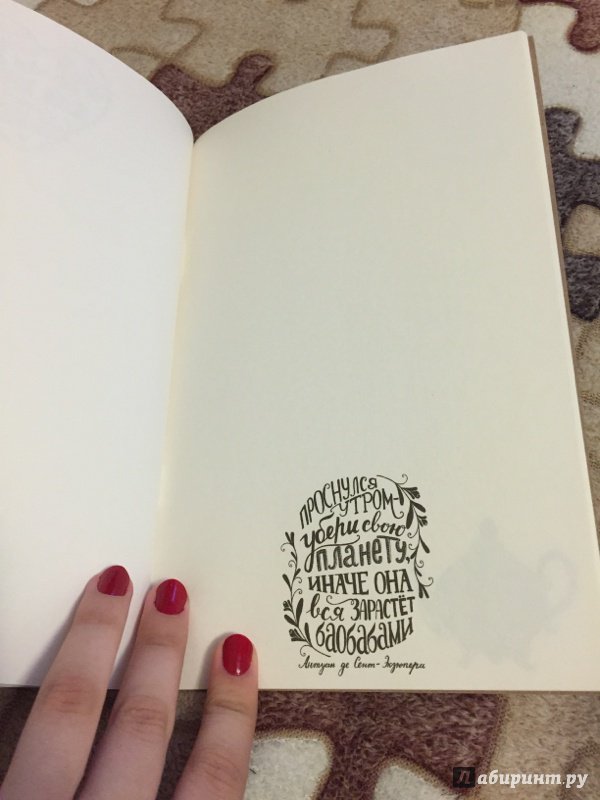 ПРОСНУЛСЯ
УТРОМ-
убери свою
ПЛАНЕТУ,
ИНАЧЕ ОНА
вся ЗАРАСТЁТ
баобабами
Антуан де Сент-Экзюпери
Лабиринт.ру